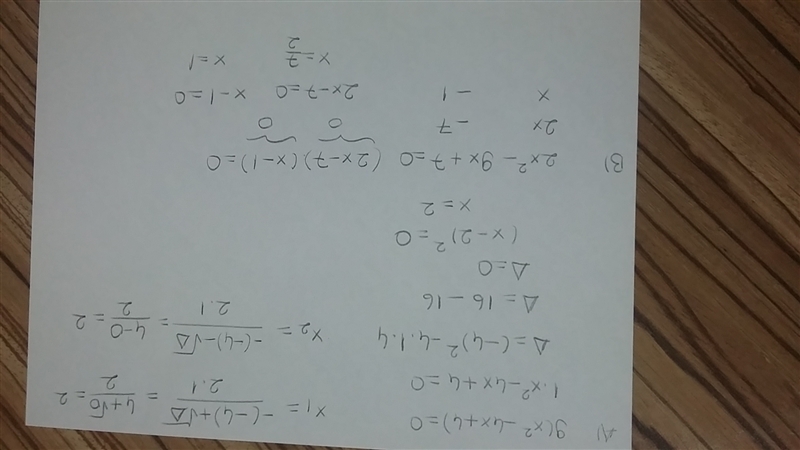 A) 9(x² - 4x + 4) = 0
1.x² - 4x + 4 = 0
Δ = (-4)² - 4.1.4
Δ = 16 - 16
Δ = 0
(x - 2)² = 0
x = 2
x₁ = (-(-4) + √Δ) / 2.1 = (4 + √0) / 2 = 2
x₂ = (-(-4) - √Δ) / 2.1 = (4 - 0) / 2 = 2
B) 2x² - 9x + 7 = 0 (2x - 7)(x - 1) = 0
2x - 7 0 0
x - 1 2x - 7 = 0 x - 1 = 0
x = 7/2 x = 1